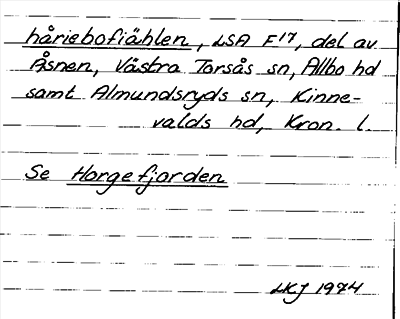 håriebofiählen, LSA F17, del av
Åsnen, Västra Torsås sn, Allbo hd
samt Almundsryds sn, Kinne-
valds hd, Kron. l.
Se Horgefjorden
LKJ 1974